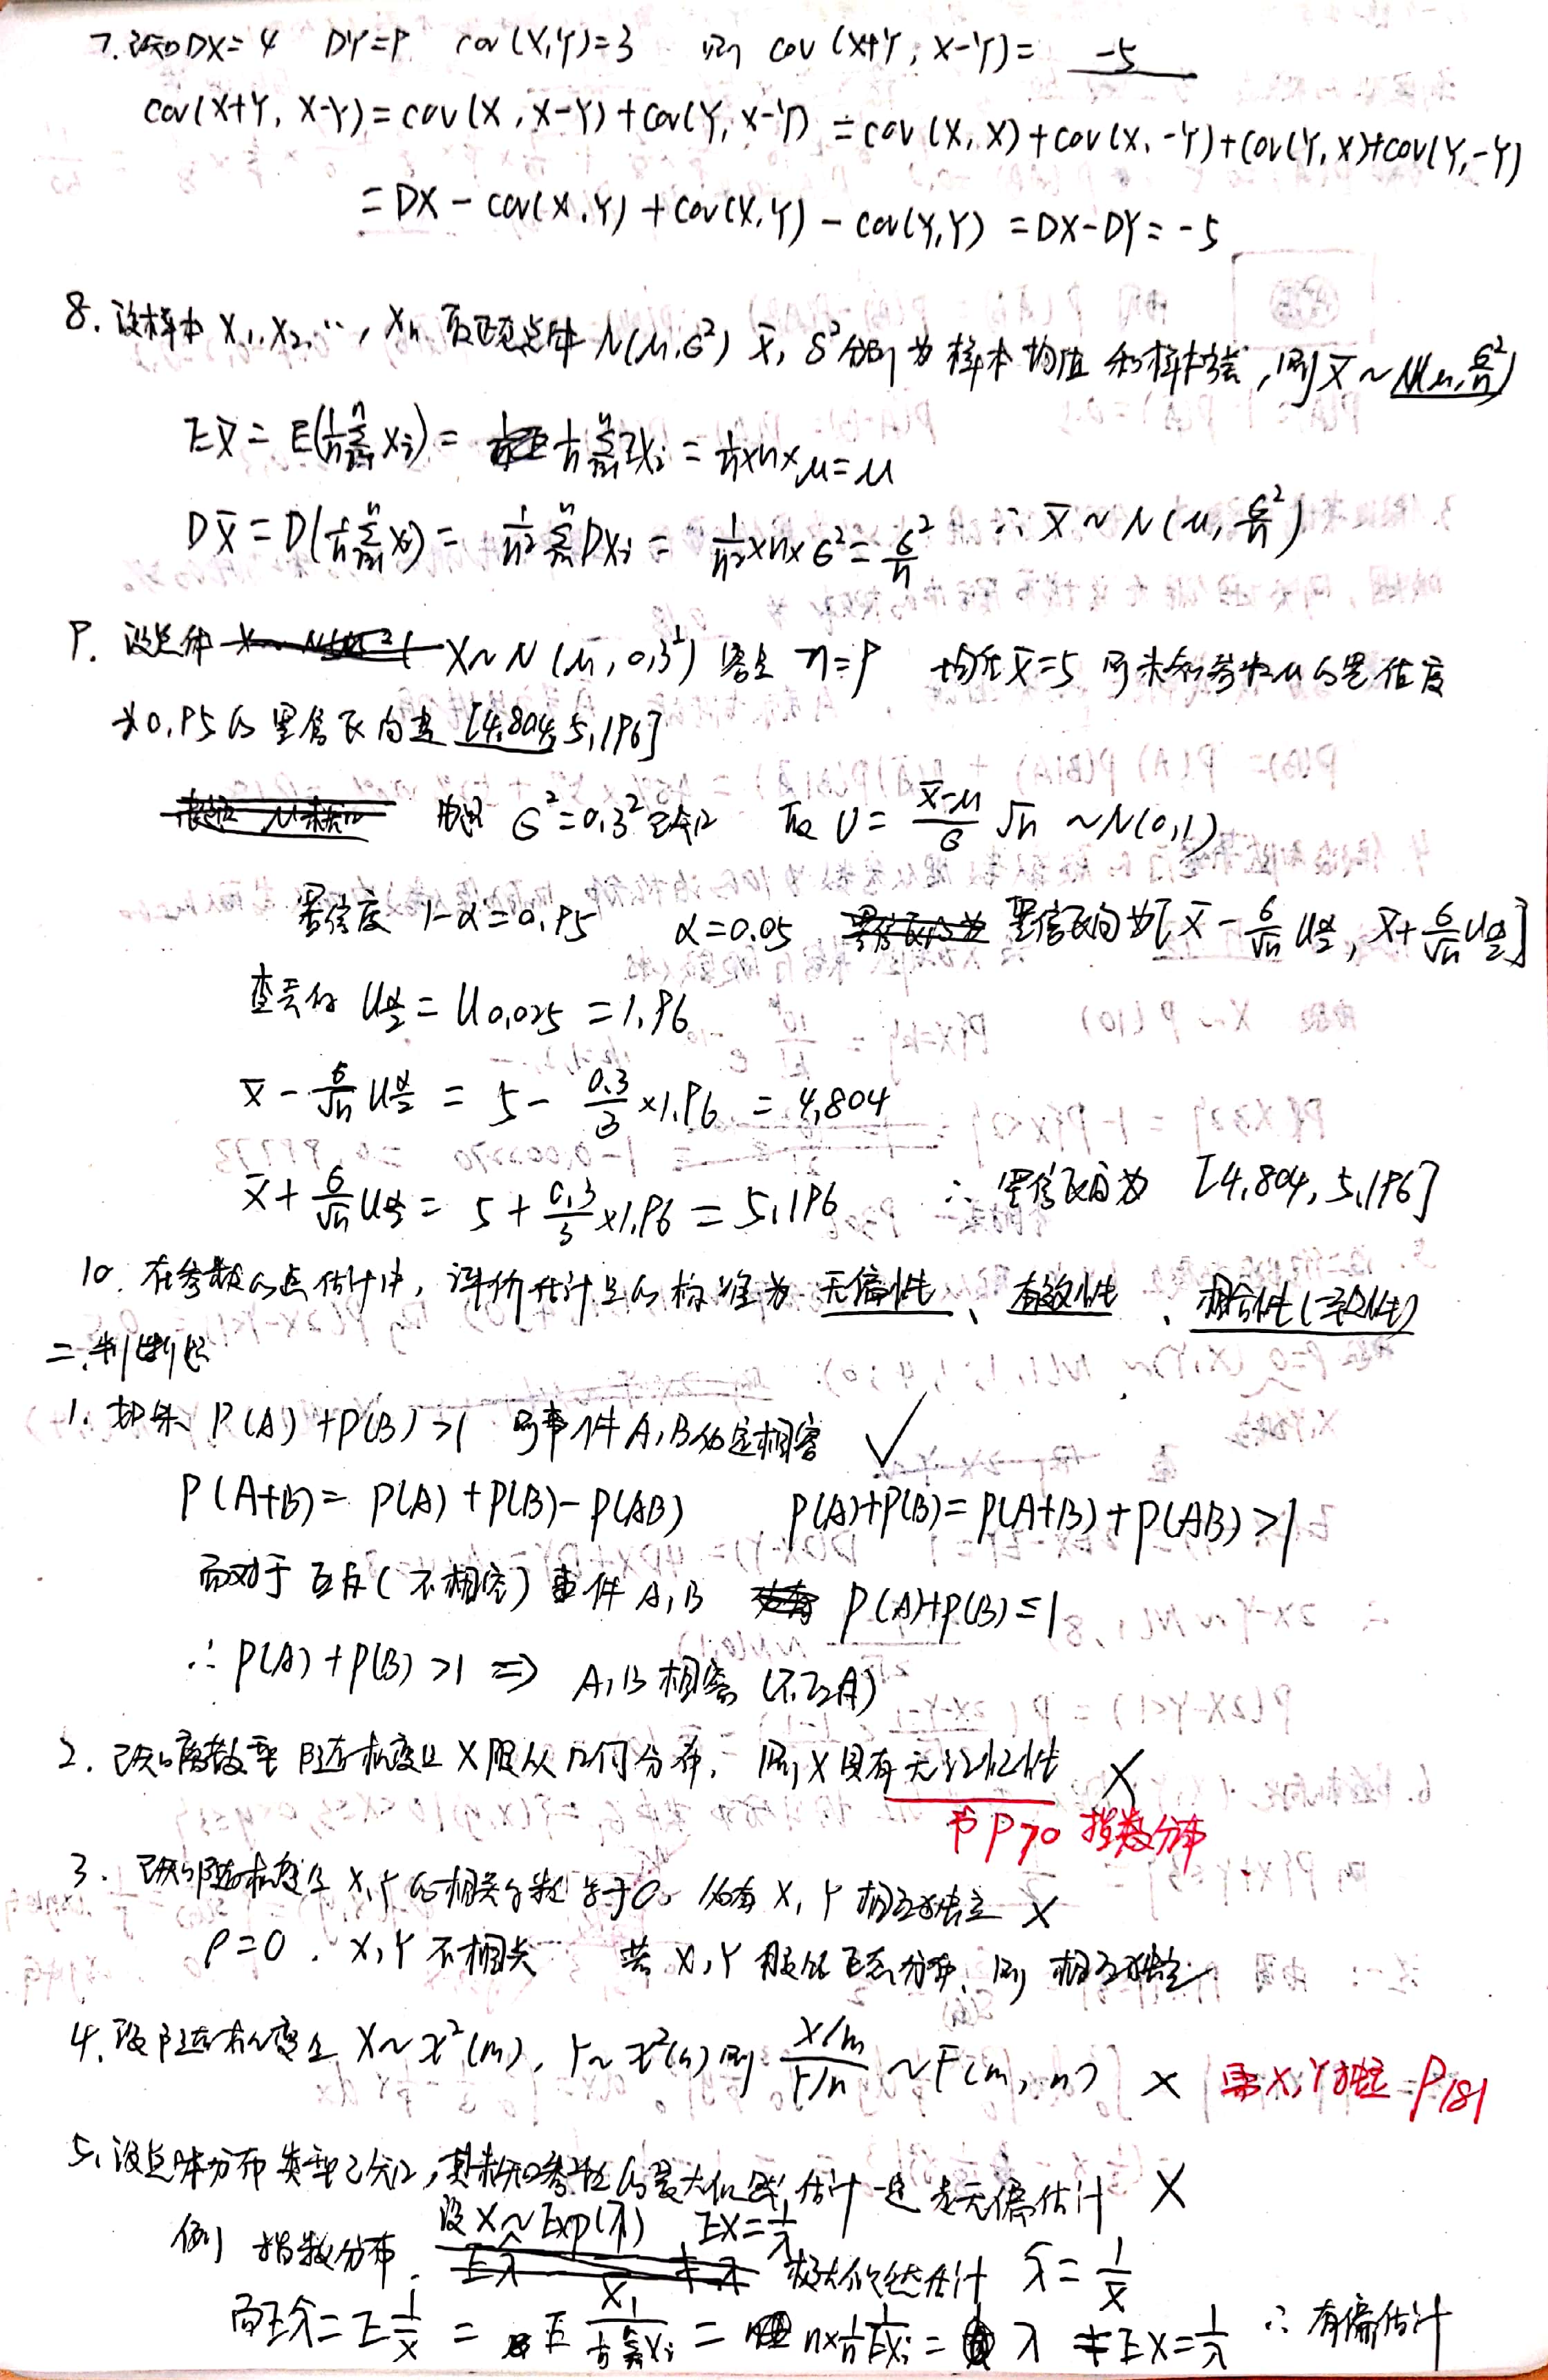 7. 已知DX=4 DY=9 cov(X,Y)=3 则 cov(X+Y, X-Y)= -5
cov(X+Y, X-Y)=cov(X, X-Y)+cov(Y, X-Y) =cov(X, X)+cov(X, -Y)+cov(Y, X)+cov(Y,-Y)
=DX-cov(X,Y)+cov(X,Y)-cov(Y,Y) =DX-DY=-5
8. 设样本 X₁,X₂,…,Xn 取正态总体 N(μ,σ²) X̄, S²分别为样本均值和样本方差,则X̄~N(μ,σ²/n)
EX̄=E(1/n Σ(i=1,n) Xi)= 1/n Σ(i=1,n) EXi = 1/n×n×μ=μ
DX̄=D(1/n Σ(i=1,n) Xi)= 1/n² Σ(i=1,n) DXi = 1/n²×n×σ²=σ²/n ∴ X̄~N(μ,σ²/n)
9. 设总体 X~N(μ,0.3²) 容量 n=9 均值X̄=5 则未知参数μ的置信度
为0.95的置信区间是 [4.804,5.196]
由题 σ²=0.3²已知 取 U=(X̄-μ)/σ √n ~N(0,1)
置信度 1-α=0.95 α=0.05 置信区间为[X̄-σ/√n uα/2, X̄+σ/√n uα/2]
查表得 uα/2=u0.025=1.96
X̄-σ/√n uα/2 = 5-0.3/3×1.96 = 4.804
X̄+σ/√n uα/2= 5+0.3/3×1.96=5.196 ∴ 置信区间为 [4.804,5.196]
10. 在参数的点估计中,评价估计量的标准为 无偏性、有效性、相合性(一致性)
二.判断题
1. 如果 P(A)+P(B)>1 则事件A,B必定相容 ✓
P(A+B)=P(A)+P(B)-P(AB) P(A)+P(B)=P(A+B)+P(AB)>1
而对于互斥(不相容)事件A,B P(A)+P(B)≤1
∴P(A)+P(B)>1 ⇒ A,B相容(不互斥)
2. 已知离散型随机变量X服从几何分布,则X具有无记忆性 ×
书P70 指数分布
3. 已知随机变量X,Y的相关系数等于0。必有X,Y相互独立 ×
ρ=0. X,Y不相关 若X,Y服从正态分布,则相互独立
4. 设随机变量 X~χ²(m), Y~χ²(n) 则 (X/m)/(Y/n) ~F(m,n) × 需X,Y独立 P181
5. 设总体分布类型已知,其未知参数的最大似然估计一定是无偏估计 ×
例 指数分布. 设X~Exp(λ) EX=1/λ 极大似然估计 λ̂=1/X̄
而Eλ̂=E 1/X̄ = E 1/(1/n Σ Xi) = n×1/n 1/EXi = λ ≠EX=1/λ ∴有偏估计